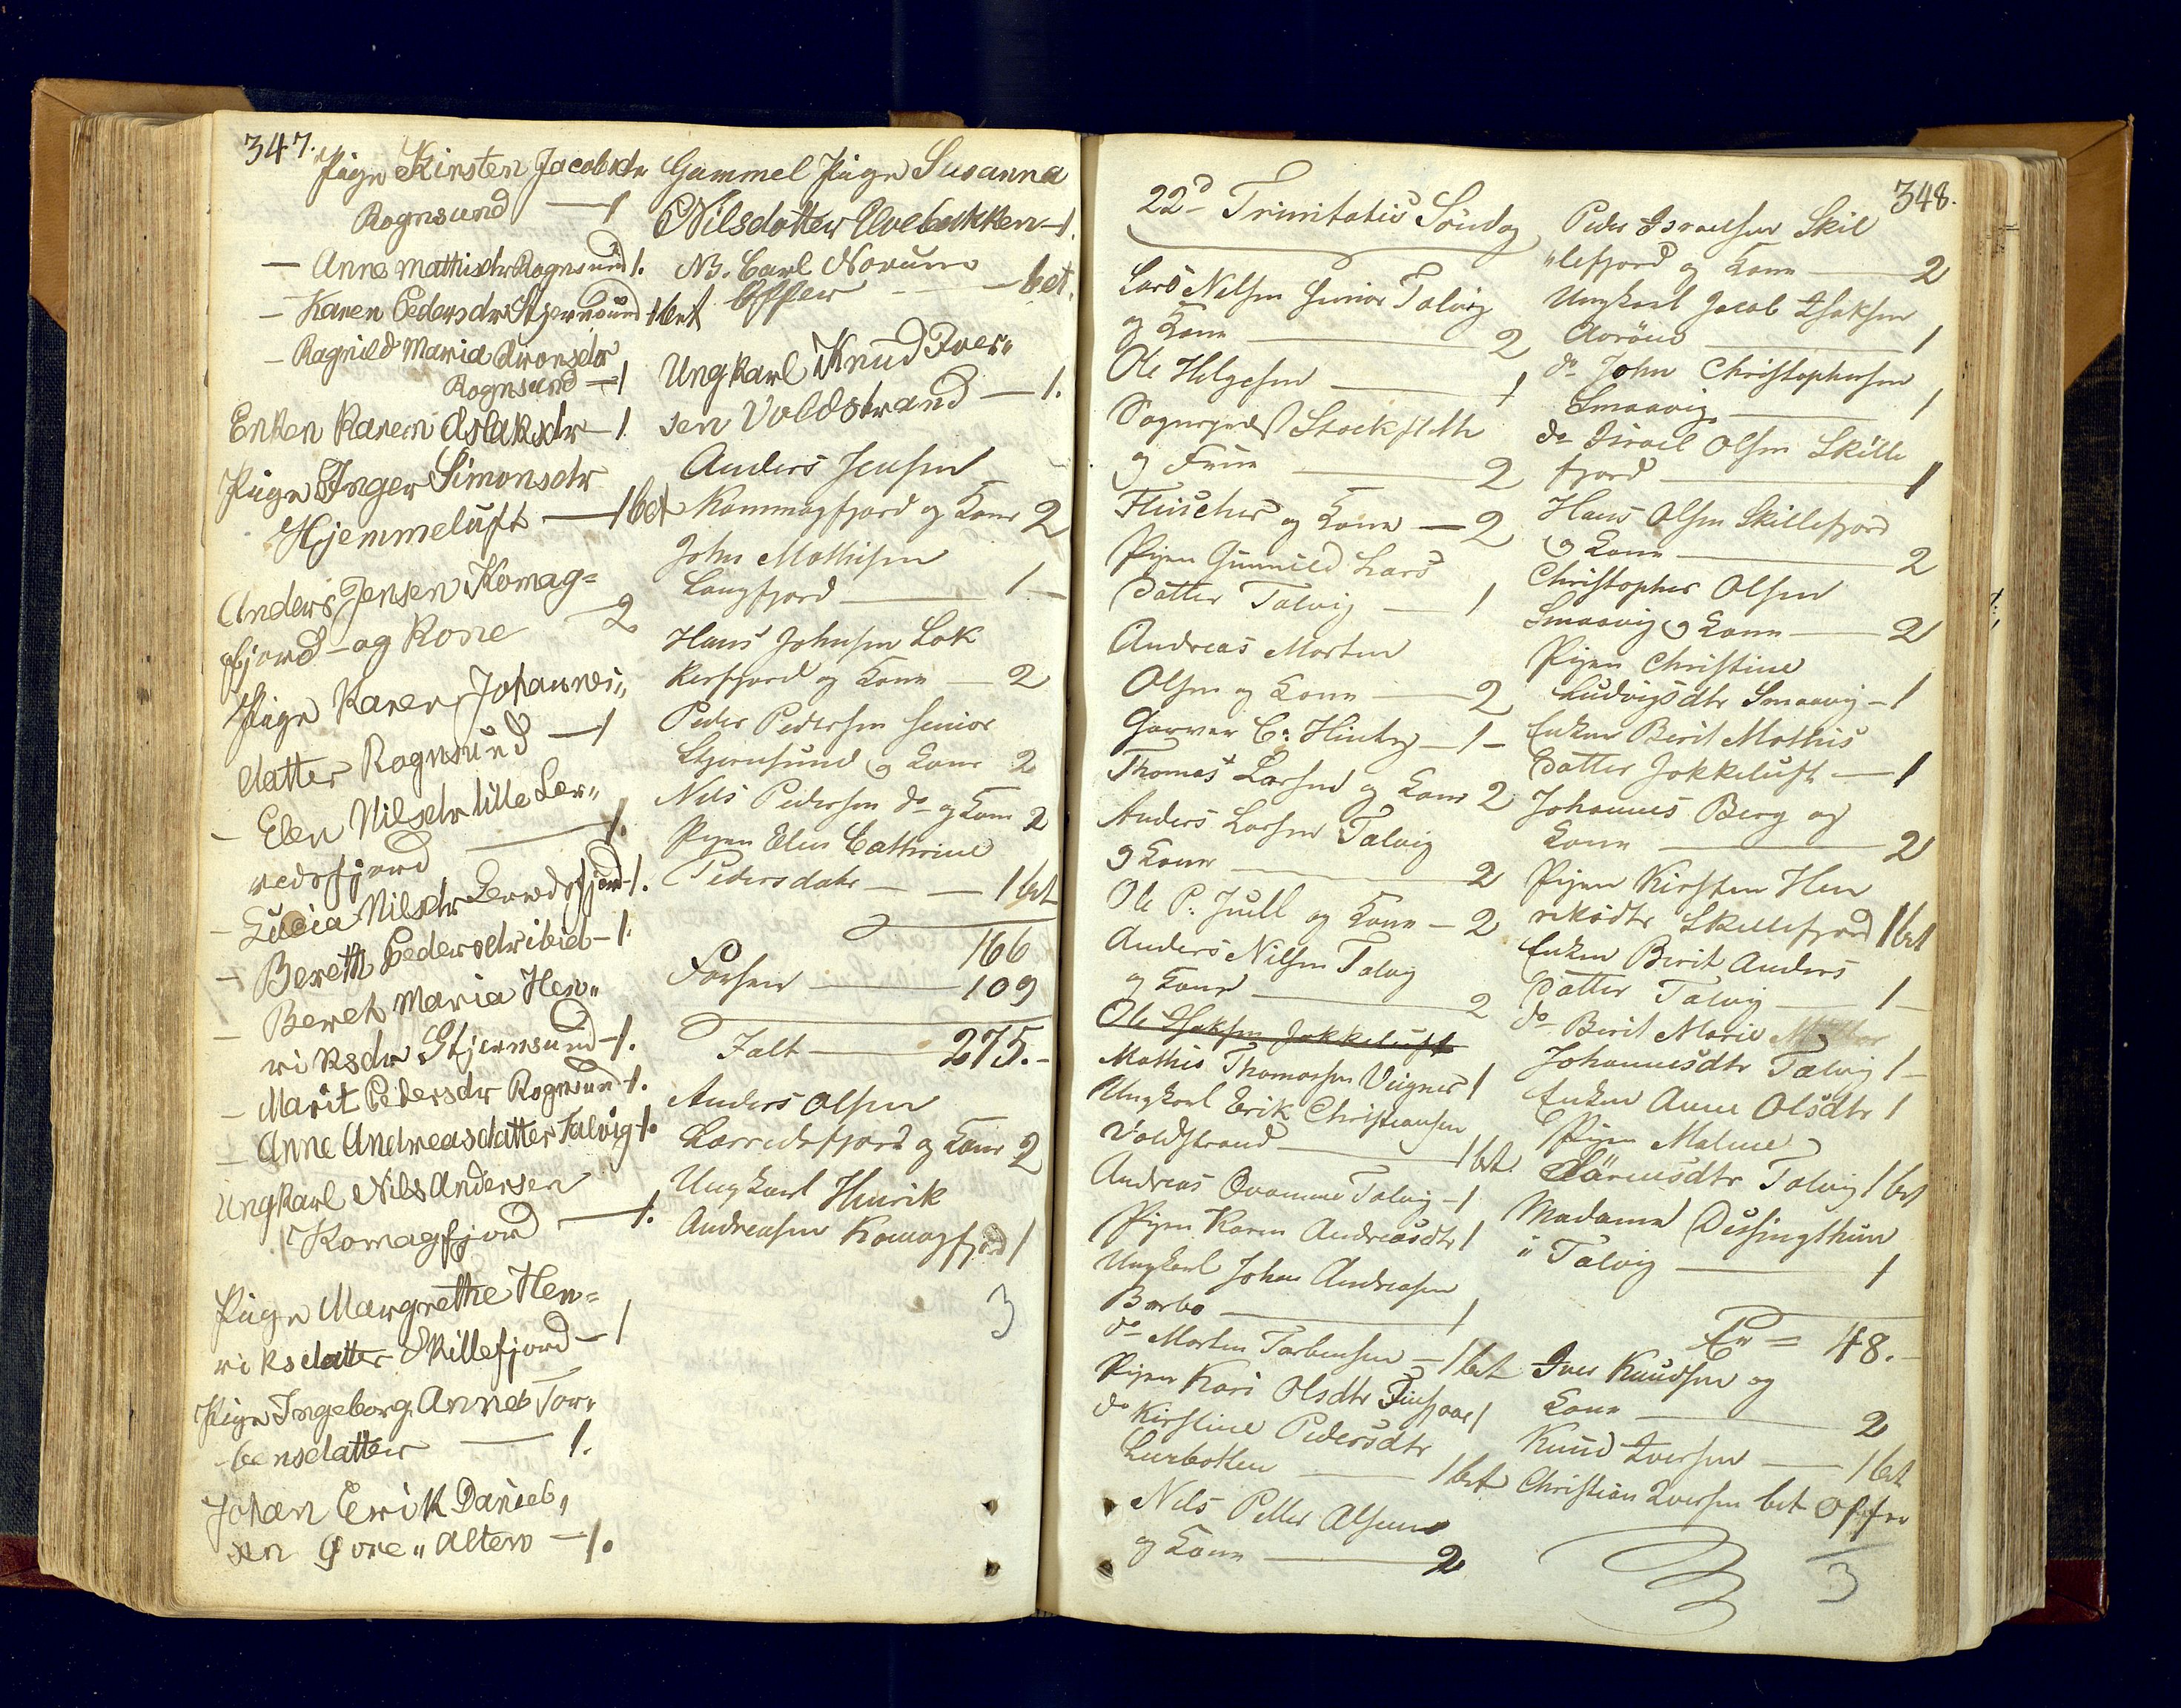 347.
Pige Kirsten Jacobsdr
Rognsund — 1
— Anne Mathisdr Rognsund 1.
— Karen Pedersdr Stjernsund 1 bet
— Ragnild Maria Aronsdr
Rognsund — 1
Enken Karen Aslaksdr — 1
Pige Inger Simonsdr
Hjemmeluft — 1 bet
Anders Jensen Komag=
fjord — og Kone — 2
Pige Karen Johannes„
datter Rognsund — 1
— Elen Nilsdr lille Ler„
redsfjord — 1.
— Lucia Nilsdr Lerredsfjord 1.
— Bereth Pedersdr ibid — 1.
— Beret Maria Hen„
riksdr Stjernsund — 1.
— Marit Pedersdr Rognsund — 1.
— Anne Andreasdatter Talvig 1.
Ungkarl Nils Andersen
Komagfjord — 1.
Pige Margrethe Hen=
riksdatter Skillefjord — 1
Pige Ingeborg Anne Tor„
bensdatter — 1.
Johan Erik Daniel„
sen Øvre„ Alten — 1.
Gammel Pige Susanna
Nilsdatter Elvebakken — 1.
NB. Carl Norum
Offer — bet.
Ungkarl Knud Iver„
sen Voldstrand — 1.
Anders Jensen
Kommagfjord og Kone 2
John Mathisen
Langfjord — 1 —
Hans Johnsen Lok
kerfjord og Kone — 2
Peder Pedersen Senior
Stjernsund og Kone 2
Nils Pedersen do og Kone 2
Pigen Elen Cathrine
Pedersdatr — — 1 bet
166
Forhen — 109
Ialt — 275. –
Anders Olsen
Lerredsfjord og Kone 2
Ungkarl Henrik
Andreasen Komagfjord 1
3
348.
22d Trinitatis Søndag
Lars Nilsen Senior Talvig
og Kone — 2
Ole Helgesen — 1
Sognepræst Stockfleth
og Frue — 2
Fleischer og Kone — 2
Pigen Gunnild Lars
datter Talvig — 1
Andreas Morten
Olsen og Kone — 2
Garver C: — 1 –
Thomas Larsen og Kone 2
Anders Larsen Talvig
og Kone — 2
Ole P: Juell og Kone — 2
Anders Nilsen Talvig
og Kone — 2
Ole Isaksen Jokkeluft
Mathis Thomasen 1
Ungkarl Erik Christiansen
Voldstrand — 1 bet
Andreas Qvamme Talvig — 1
Pigen Karen Andreasdtr 1
Ungkarl Johan Andreasen
Borbo — 1
do Morten Torbensen — 1 bet
Pigen Kari Olsdtr 1
do Kirstine Pedersdtr
Lerbotten — 1 bet
Nils Peder Olsen
og Kone — 2
Peder Israelsen Skil
„lefjord og Kone — 2
Ungkarl Jacob Isaksen
Aarøen — 1
do John Christophersen
Smaavig — 1
do Israel Olsen Skille
fjord — 1
Hans Olsen Skillefjord
og Kone — 2
Christopher Olsen
Smaavig og Kone — 2
Pigen Christine
Ludvigsdtr Smaavig — 1
Enken Berit Mathis
datter Jokkeluft — 1
Johannes Berg og
Kone — 2
Pigen Kirsten Hen
riksdtr Skillefjord 1 bet
Enken Berit Anders
datter Talvig — 1 –
do Berit Marie
Johannesdtr Talvig 1 –
Enken Anne Olsdtr 1
Pigen Malene
Sørensdtr Talvig 1 bet
Madame Dessingthun
„ Talvig — 1
= 48. –
Iver Knudsen og
Kone — 2
Knud Iversen — 1 bet
Christian Iversen bet Offer
3